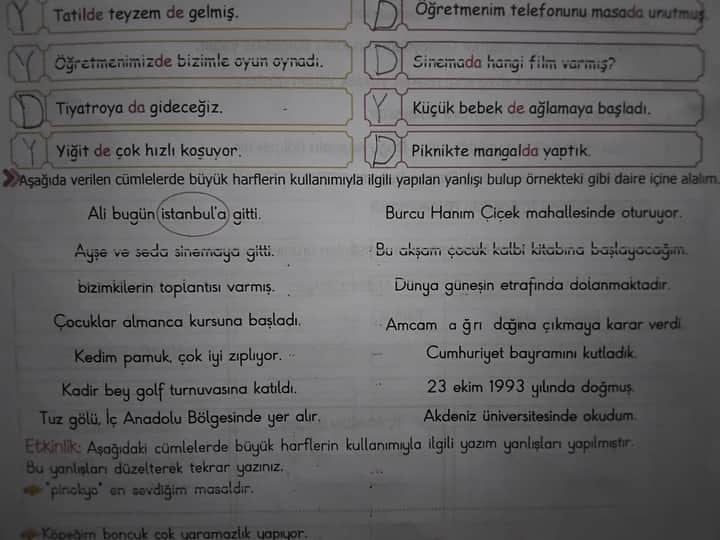 Y Tatilde teyzem de gelmiş.
D Öğretmenim telefonunu masada unutmuş.
Y Öğretmenimizde bizimle oyun oynadı.
D Sinemada hangi film varmış?
D Tiyatroya da gideceğiz.
Y Küçük bebek de ağlamaya başladı.
Y Yiğit de çok hızlı koşuyor.
D Piknikte mangalda yaptık.
Aşağıda verilen cümlelerde büyük harflerin kullanımıyla ilgili yapılan yanlışı bulup örnekteki gibi daire içine alalım.
Ali bugün istanbul'a gitti.
Burcu Hanım Çiçek mahallesinde oturuyor.
Ayşe ve seda sinemaya gitti.
Bu akşam çocuk kalbi kitabına başlayacağım.
bizimkilerin toplantısı varmış.
Dünya güneşin etrafında dolanmaktadır.
Çocuklar almanca kursuna başladı.
Amcam a ğrı dağına çıkmaya karar verdi.
Kedim pamuk, çok iyi zıplıyor.
Cumhuriyet bayramını kutladık.
Kadir bey golf turnuvasına katıldı.
23 ekim 1993 yılında doğmuş.
Tuz gölü, İç Anadolu Bölgesinde yer alır.
Akdeniz üniversitesinde okudum.
Etkinlik: Aşağıdaki cümlelerde büyük harflerin kullanımıyla ilgili yazım yanlışları yapılmıştır.
Bu yanlışları düzelterek tekrar yazınız.
"pinokyo" en sevdiğim masaldır.
Köpeğim boncuk çok yaramazlık yapıyor.